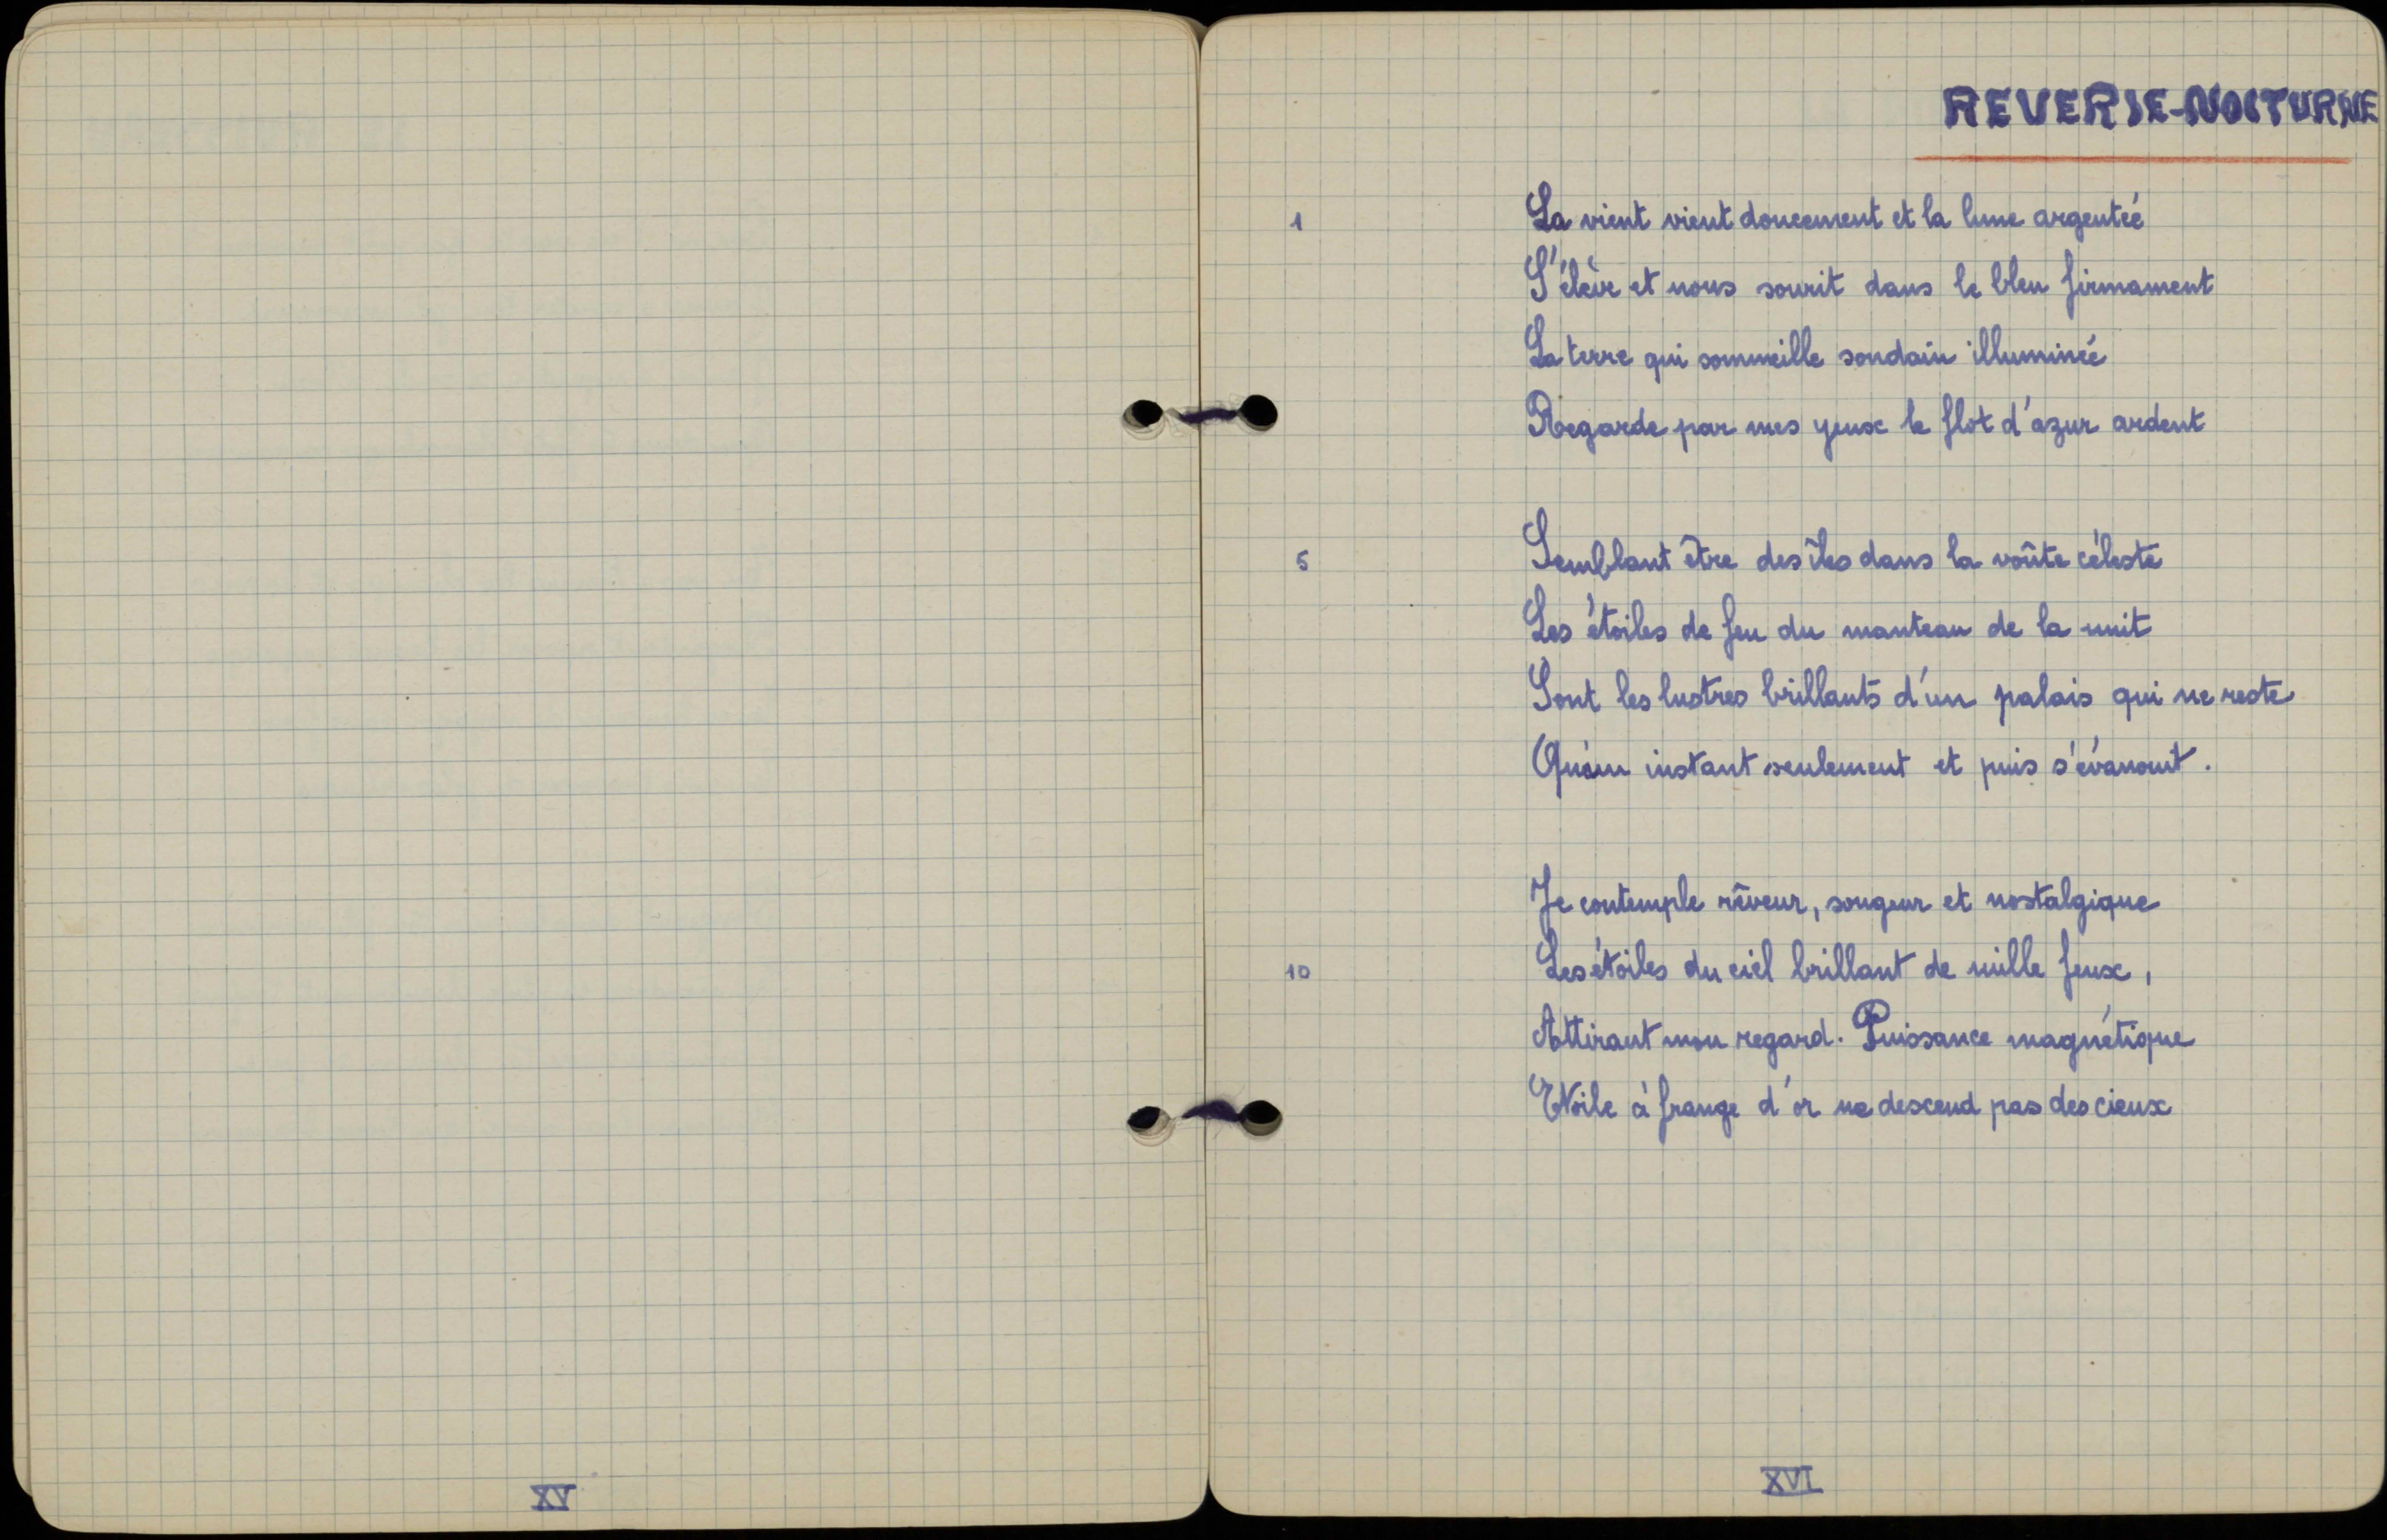 XV
REVERIE-NOCTURNE
1 La vient vient doucement et la lune argenteé
S'élève et nous sourit dans le bleu firmament
La terre qui sommeille soudain illumineé
Regarde par mes yeux le flot d'azur ardent
5 Semblant être des îles dans la voûte céleste
Les étoiles de feu du manteau de la nuit
Sont les lustres brillants d'un palais qui ne reste
Qu'un instant seulement et puis s'évanouit.
Je contemple rêveur, songeur et nostalgique
10 Les étoiles du ciel brillant de mille feux,
Attirant mon regard. Puissance magnétique
Etoile à frange d'or ne descend pas des cieux
XVI